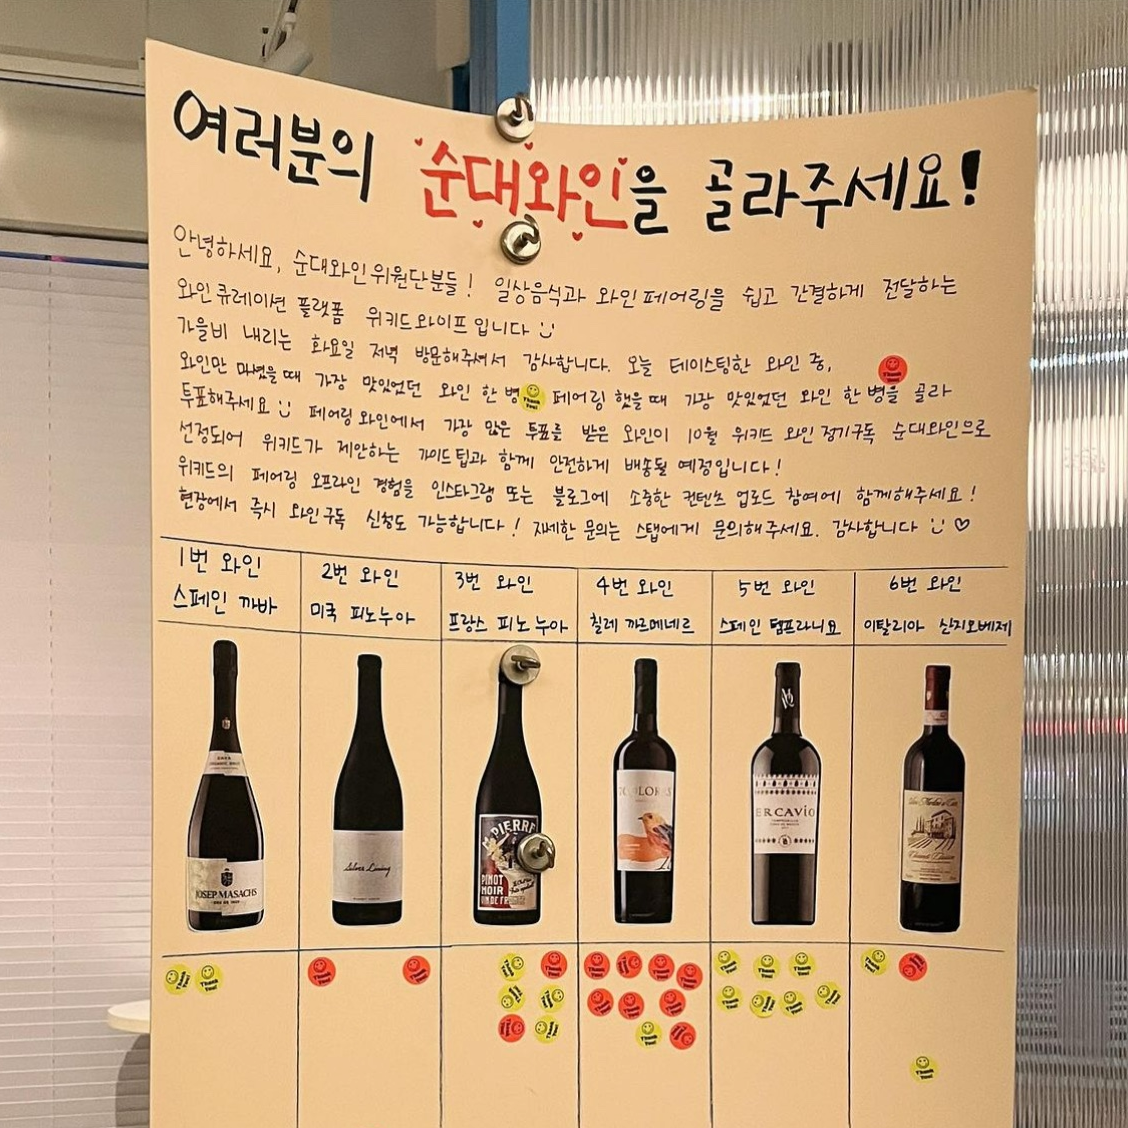 여러분의 순대와인을 골라주세요!
안녕하세요, 순대와인 위원단분들! 일상음식과 와인 페어링을 쉽고 간결하게 전달하는
와인 큐레이션 플랫폼 위키드와이프 입니다
가을비 내리는 화요일 저녁 방문해주셔서 감사합니다. 오늘 테이스팅한 와인 중,
와인만 마셨을 때 가장 맛있었던 와인 한 병 페어링 했을 때 가장 맛있었던 와인 한 병을 골라
투표해주세요 페어링 와인에서 가장 많은 투표를 받은 와인이 10월 위키드 와인 정기구독 순대와인으로
선정되어 위키드가 제안하는 가이드 팁과 함께 안전하게 배송될 예정입니다!
위키드의 페어링 오프라인 경험을 인스타그램 또는 블로그에 소중한 컨텐츠 업로드 참여에 함께해주세요!
현장에서 즉시 와인구독 신청도 가능합니다! 자세한 문의는 스탭에게 문의해주세요. 감사합니다 ♡
1번 와인 2번 와인 3번 와인 4번 와인 5번 와인 6번 와인
스페인 까바 미국 피노누아 프랑스 피노누아 칠레 까르메네르 스페인 템프라니요 이탈리아 산지오베제
JOSEP MASACHS
Silver Lining
PIERRE
PINOT
NOIR
VIN DE FRANCE
ERCAVIO
Thank You!